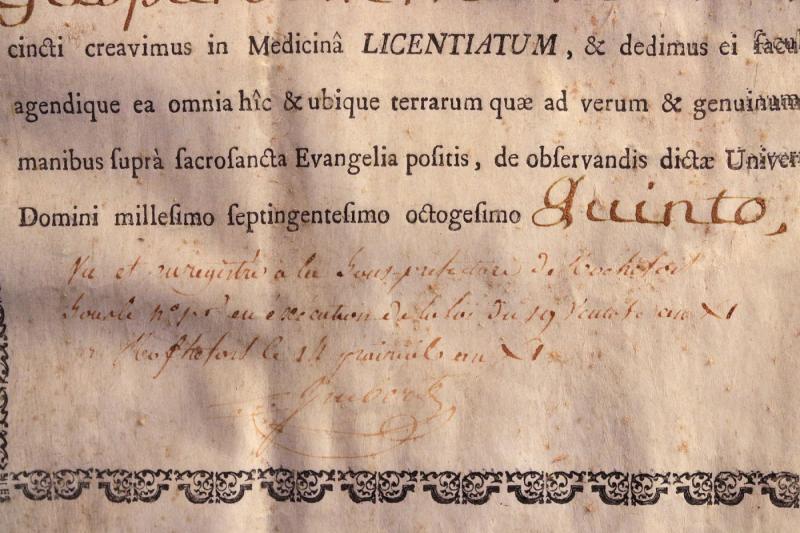 cincti creavimus in Medicinâ LICENTIATUM, & dedimus ei
agendique ea omnia hîc & ubique terrarum quæ ad verum & genuinum
manibus ſuprà ſacroſancta Evangelia poſitis, de obſervandis dictæ
Domini milleſimo ſeptingenteſimo octogeſimo Quinto,
Vu et enregistré à la Sous-préfecture de Rochefort
Sous le n° en exécution de la loi du 19 Ventose an XI
Rochefort le 14 prairial an XI